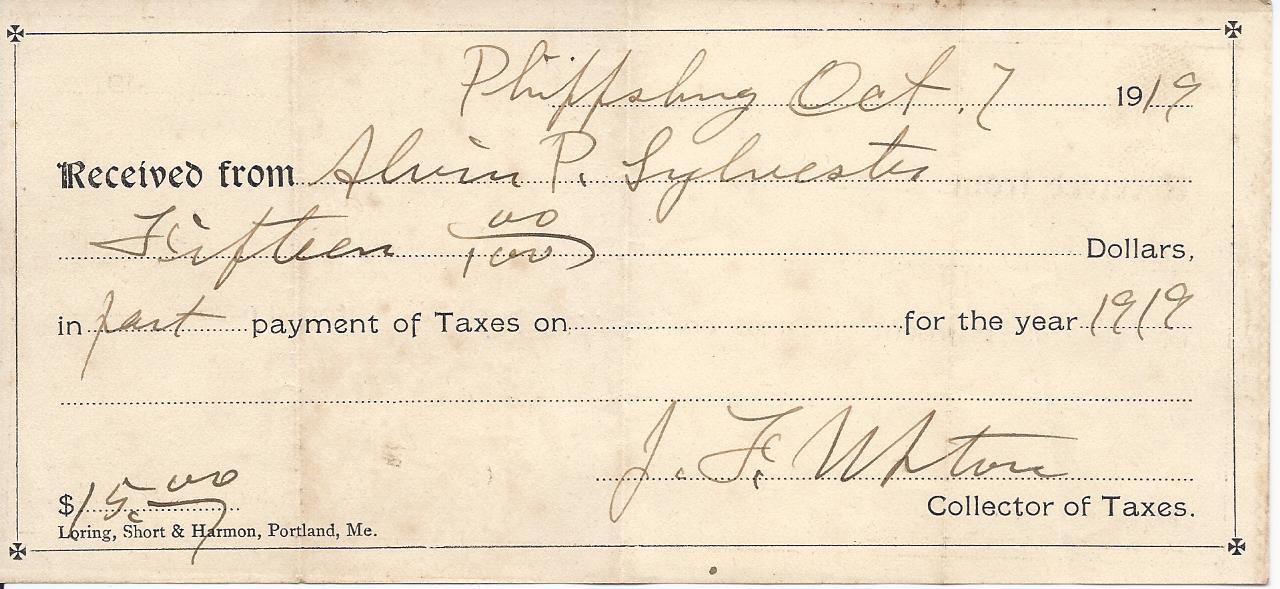 Phippsburg Oct. 7 1919
Received from Alvin P. Sylvester
Fifteen 00/100 Dollars,
in part payment of Taxes on for the year 1919
J. F.
$15.00 Collector of Taxes.
Loring, Short & Harmon, Portland, Me.